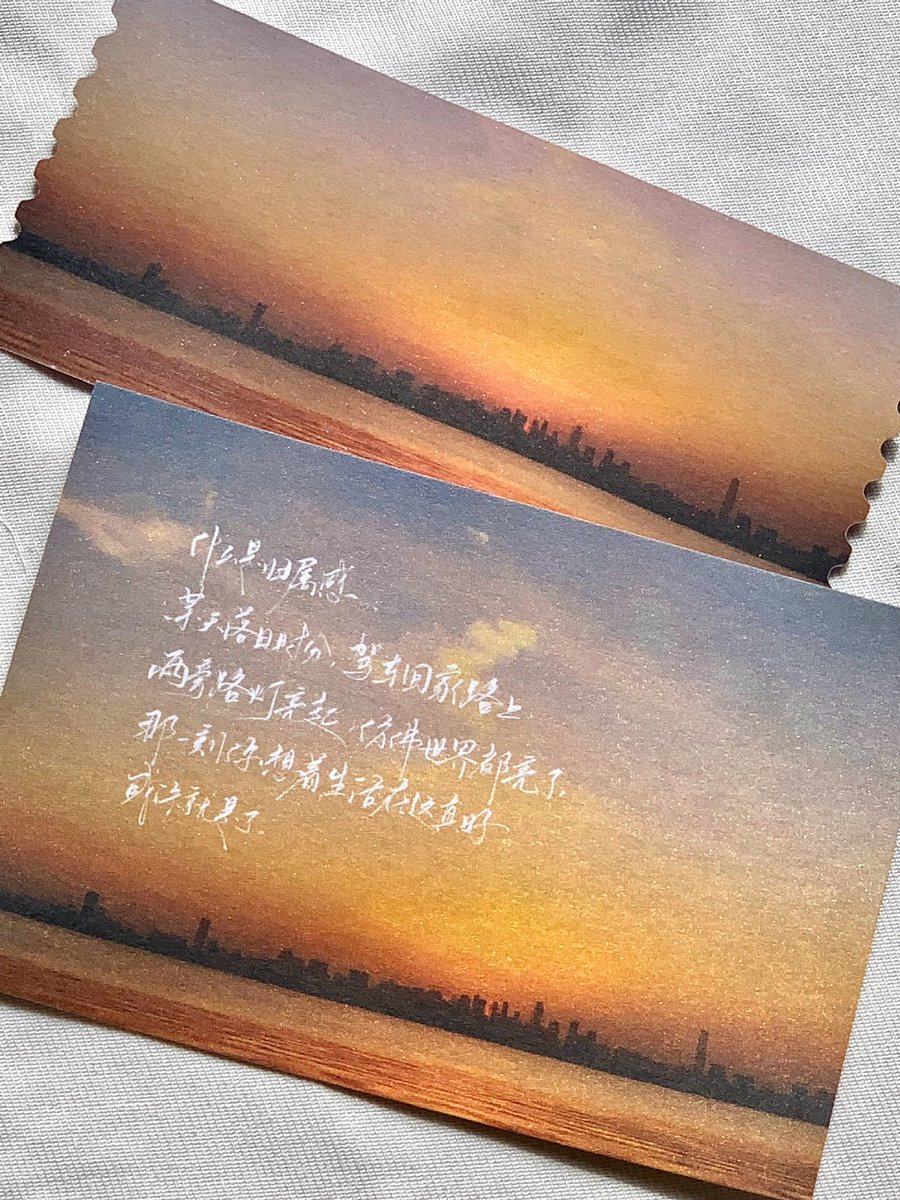 什么是归属感
某天落日时分，驾车回家路上，
两旁路灯亮起，仿佛世界都亮了，
那一刻你想着生活在这真好，
或许就是了。